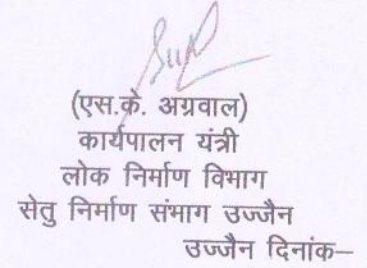 (एस.के. अग्रवाल)
कार्यपालन यंत्री
लोक निर्माण विभाग
सेतु निर्माण संभाग उज्जैन
उज्जैन दिनांक–